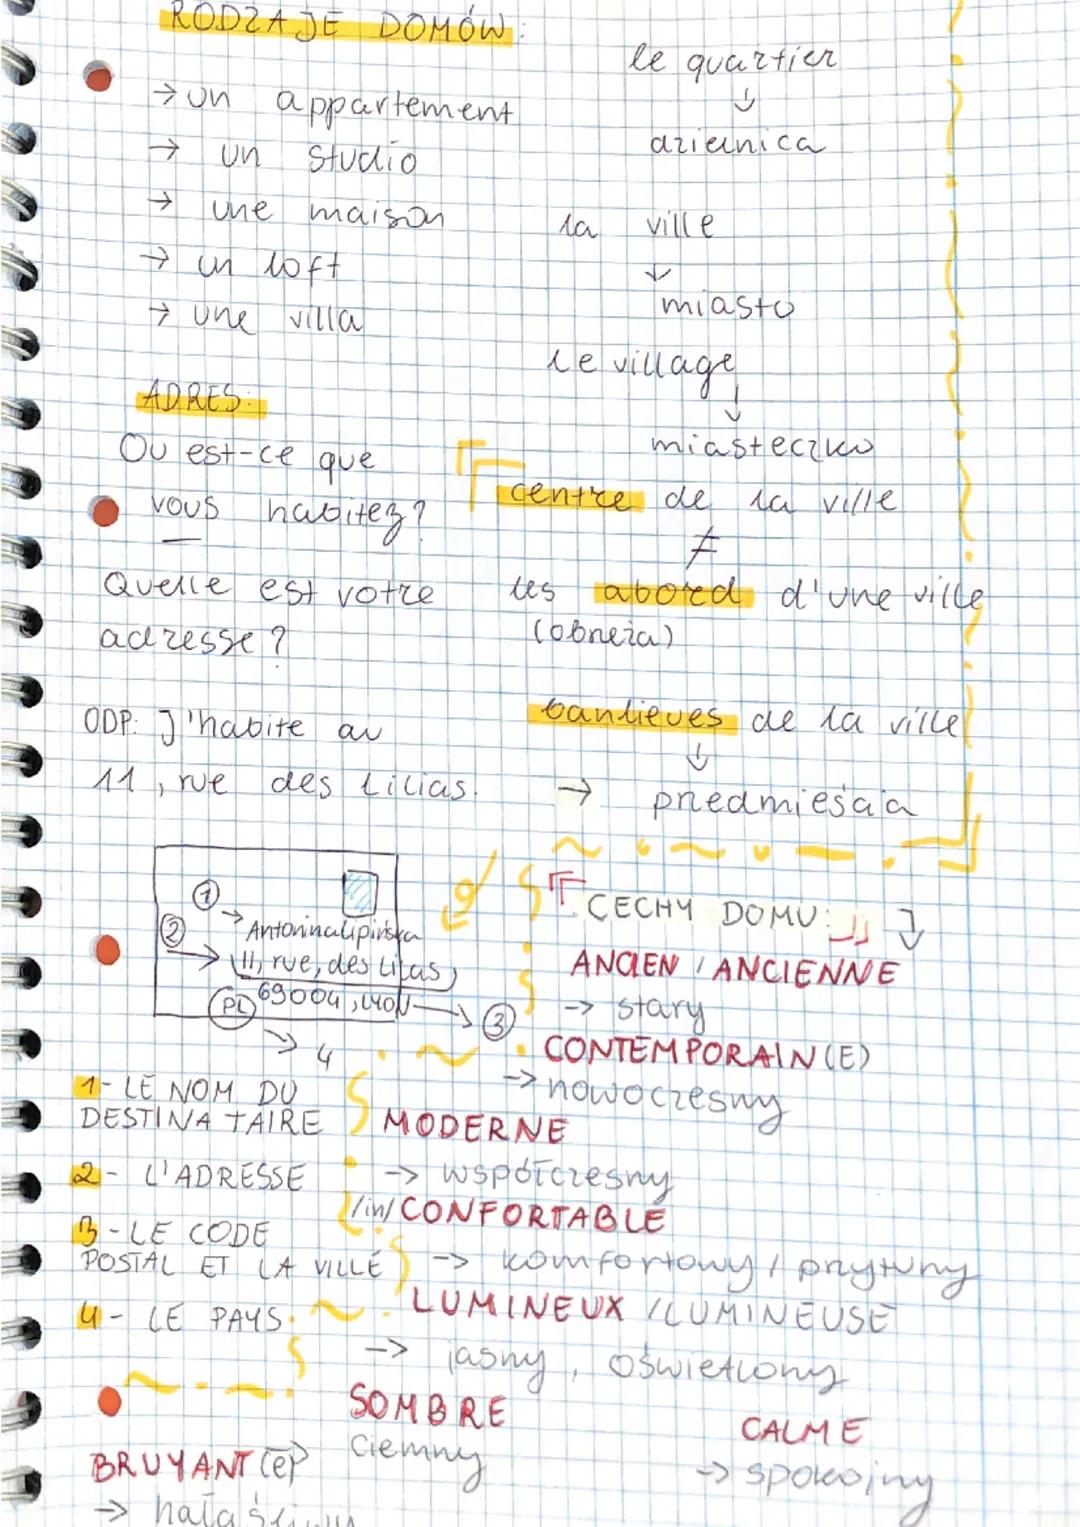 RODZAJE DOMÓW:
→ un appartement
→ un studio
→ une maison
→ un loft
→ une villa
le quartier
↓
dzielnica
la ville
↓
miasto
le village
↓
miasteczko
ADRES:
Ou est-ce que
vous habitez?
Quelle est votre
adresse?
ODP: J'habite au
11, rue des Lilias.
centre de la ville
≠
les abord d'une ville
(obrzeża)
banlieues de la ville
↓
→ przedmieścia
1 → Antonina Lipińska
2 → 11, rue, des Lilas,
69004, LYON → 3
PL → 4
1- LE NOM DU
DESTINATAIRE
2- L'ADRESSE
3-LE CODE
POSTAL ET LA VILLE
4- LE PAYS
CECHY DOMU:
ANCIEN / ANCIENNE
→ stary
CONTEMPORAIN(E)
→ nowoczesny
MODERNE
→ współczesny
/in/CONFORTABLE
→ komfortowy / przytulny
LUMINEUX / LUMINEUSE
→ jasny, oświetlony
SOMBRE
ciemny
CALME
→ spokojny
BRUYANT(E)
→ hałaśliwy